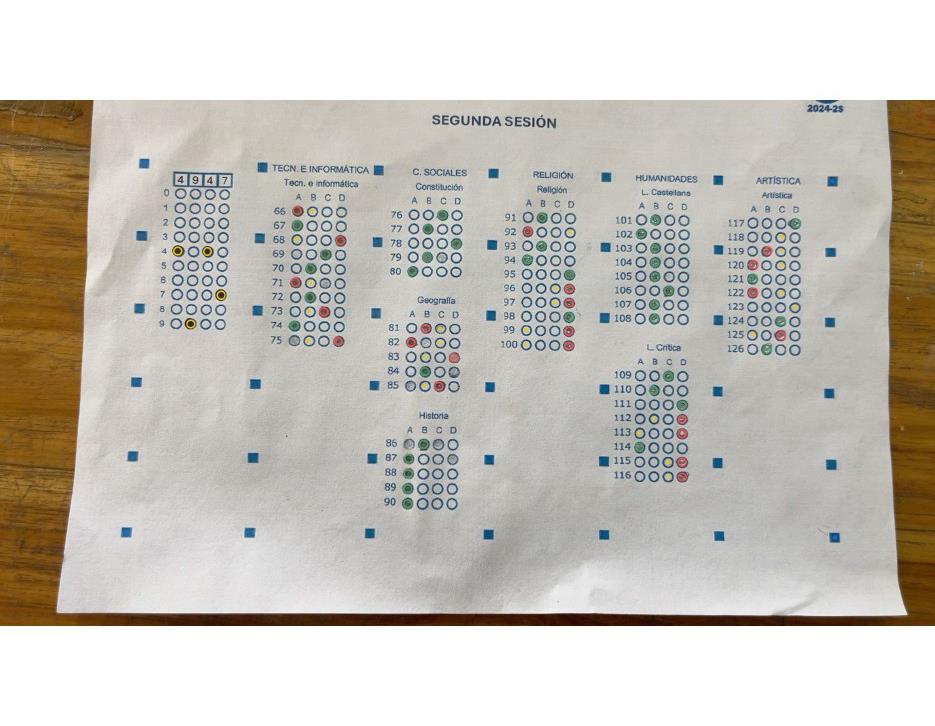 2024-2S
SEGUNDA SESIÓN
4 9 4 7
0
1
2
3
4
5
6
7
8
9
TECN. E INFORMÁTICA
Tecn. e Informática
A B C D
66
67
68
69
70
71
72
73
74
75
C. SOCIALES
Constitución
A B C D
76
77
78
79
80
Geografía
A B C D
81
82
83
84
85
Historia
A B C D
86
87
88
89
90
RELIGIÓN
Religión
A B C D
91
92
93
94
95
96
97
98
99
100
HUMANIDADES
L. Castellana
A B C D
101
102
103
104
105
106
107
108
L. Crítica
A B C D
109
110
111
112
113
114
115
116
ARTÍSTICA
Artística
A B C D
117
118
119
120
121
122
123
124
125
126